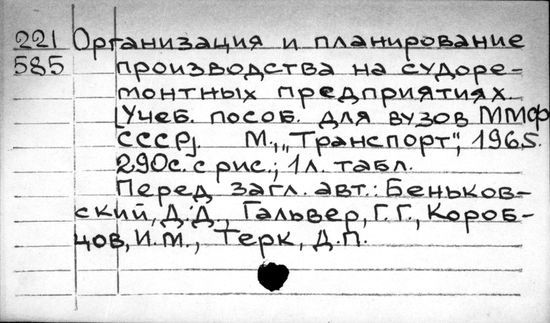 221 Организация и планирование
585 производства на судоре-
монтных предприятиях.
[Учеб. пособ. для вузов ММФ
СССР]. М., „Транспорт", 1965.
290с. с рис.; 1л. табл.
Перед загл. авт.: Беньков-
ский, Д.Д., Гальвер, Г.Г., Короб-
цов, И.М., Терк, Д.П.